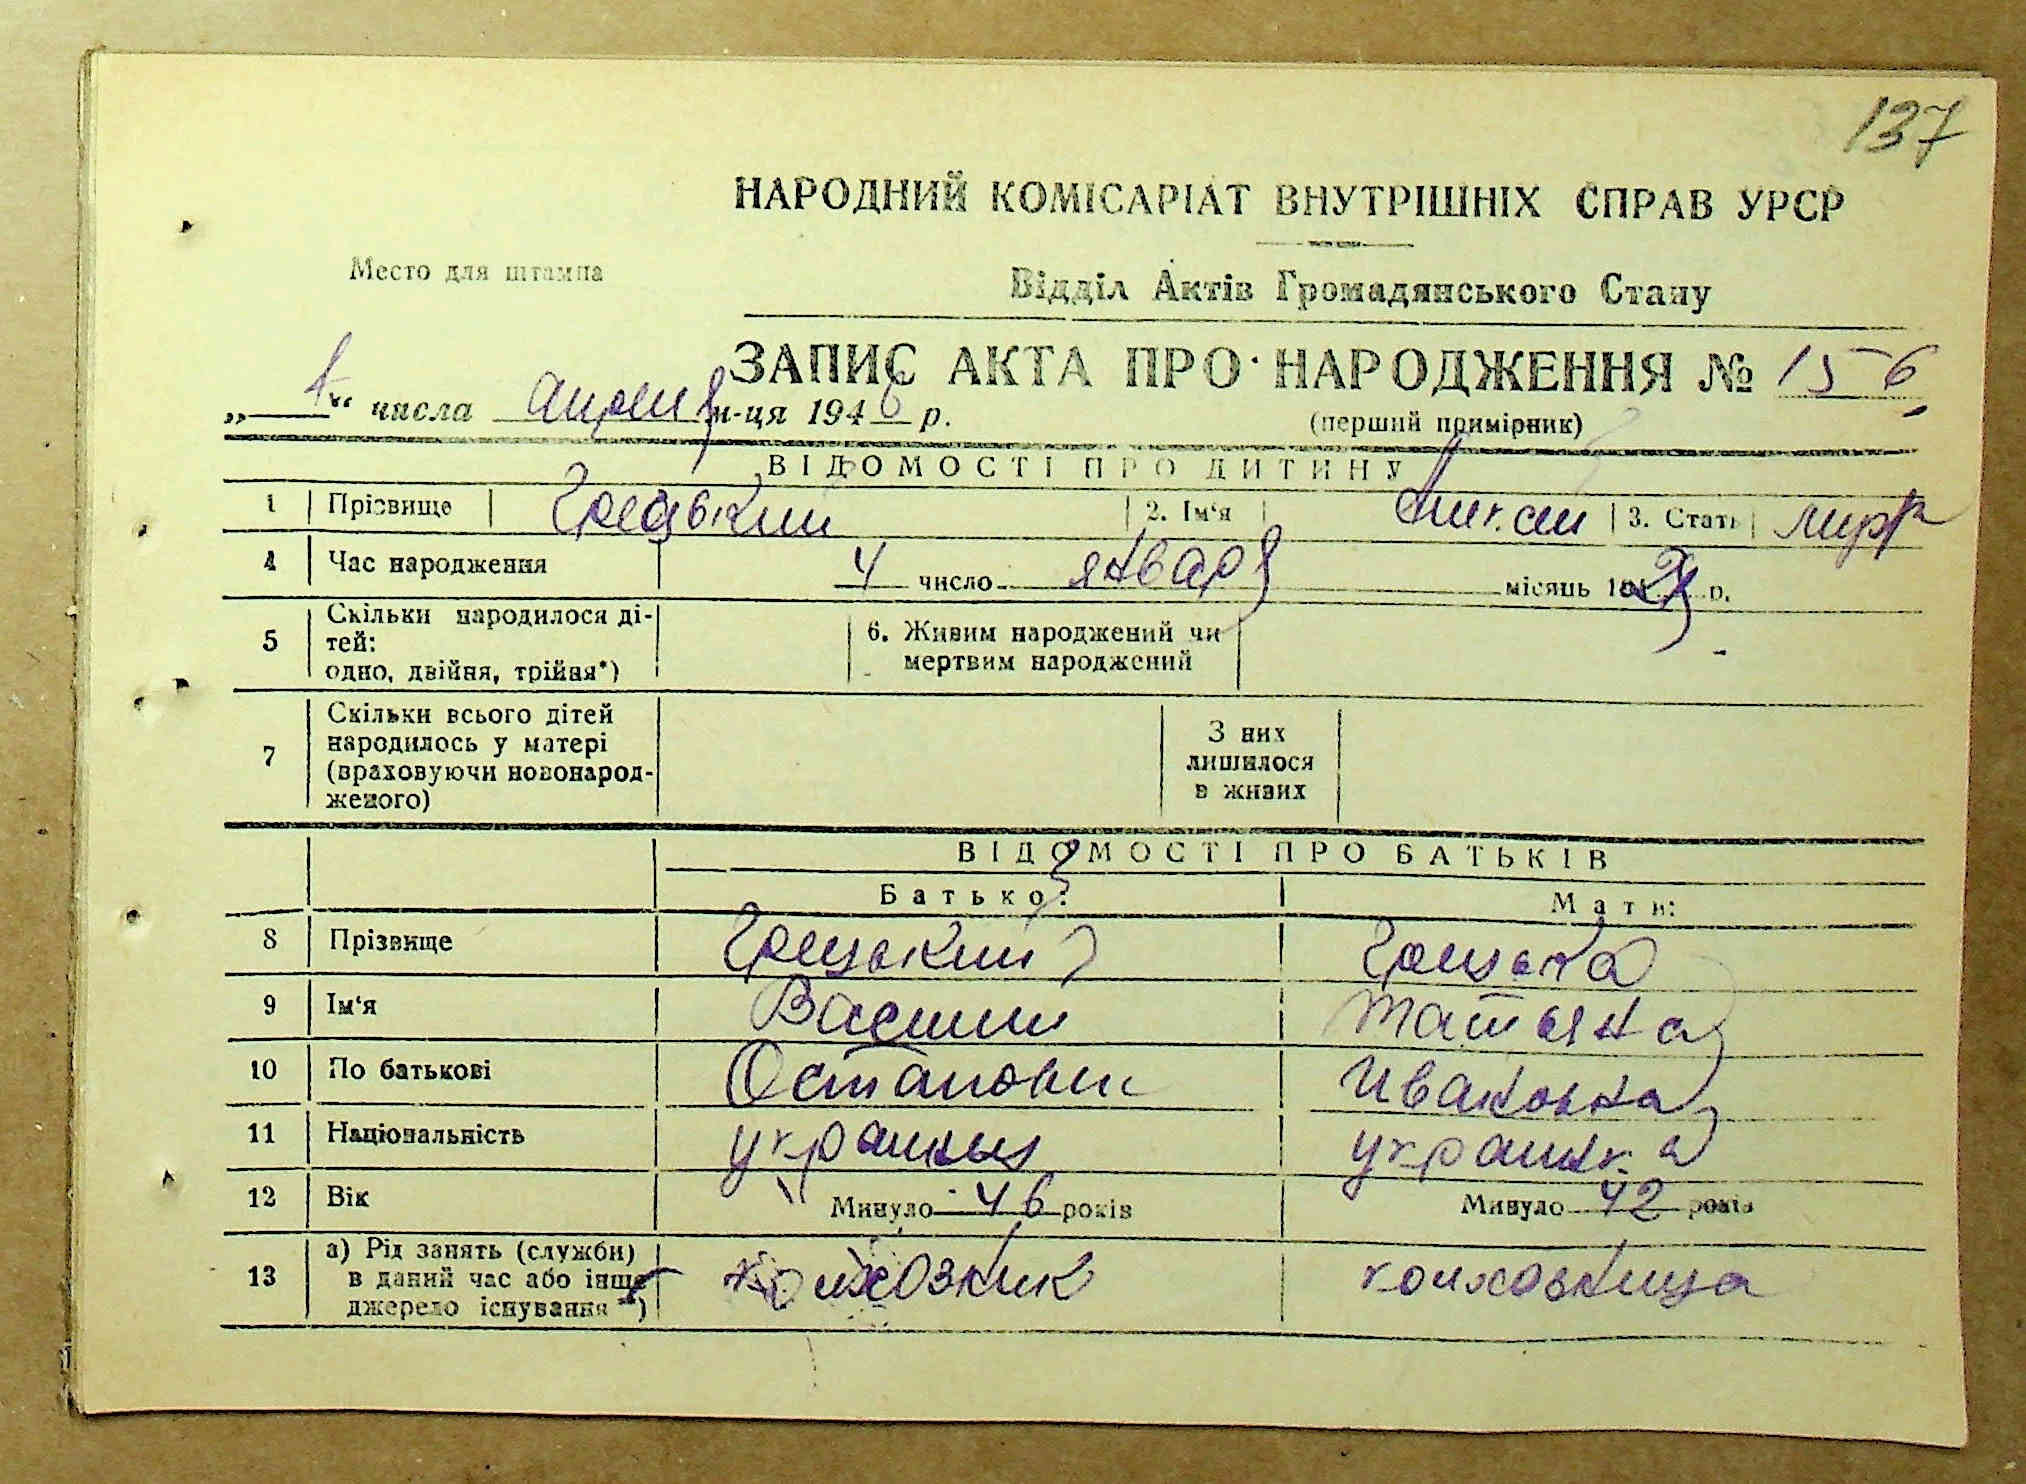 137
НАРОДНИЙ КОМІСАРІАТ ВНУТРІШНІХ СПРАВ УРСР
Место для штампа
Відділ Актів Громадянського Стану
ЗАПИС АКТА ПРО НАРОДЖЕННЯ № 156
„1“ числа апреля м-ця 1946 р.
(перший примірник)
ВІДОМОСТІ ПРО ДИТИНУ
1 Прізвище Грецький 2. Ім'я 3. Стать
4 Час народження 4 число января місяць р.
5 Скільки народилося ді-
тей:
одно, двійня, трійня*)
6. Живим народжений чи
мертвим народжений
7 Скільки всього дітей
народилось у матері
(враховуючи новонарод-
женого)
З них
лишилося
в живих
ВІДОМОСТІ ПРО БАТЬКІВ
Батько: Мати:
8 Прізвище Грецький Грецька
9 Ім'я Василий Татьяна
10 По батькові Остапович Ивановна
11 Національність украинец украинка
12 Вік Минуло 46 років Минуло 42 років
13 а) Рід занять (служби)
в даний час або інше
джерело існування *)
колхозник колхозница